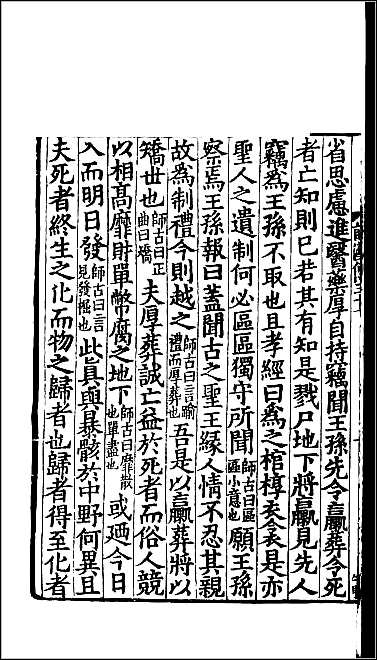 省思慮進醫藥厚自持竊聞王孫先令臝葬令死
者亡知則已若其有知是戮尸地下將臝見先人
竊爲王孫不取也且孝經曰爲之棺椁衣衾是亦
聖人之遺制何必區區獨守所聞師古曰區區小意也願王孫
察焉王孫報曰蓋聞古之聖王緣人情不忍其親
故爲制禮今則越之師古曰言踰禮而厚葬也吾是以臝葬將以
矯世也師古曰正曲曰矯夫厚葬誠亡益於死者而俗人競
以相高靡財單幣腐之地下師古曰靡散也單盡也或廼今日
入而明日發師古曰言見發掘也此真與暴骸於中野何異且
夫死者終生之化而物之歸者也歸者得至化者